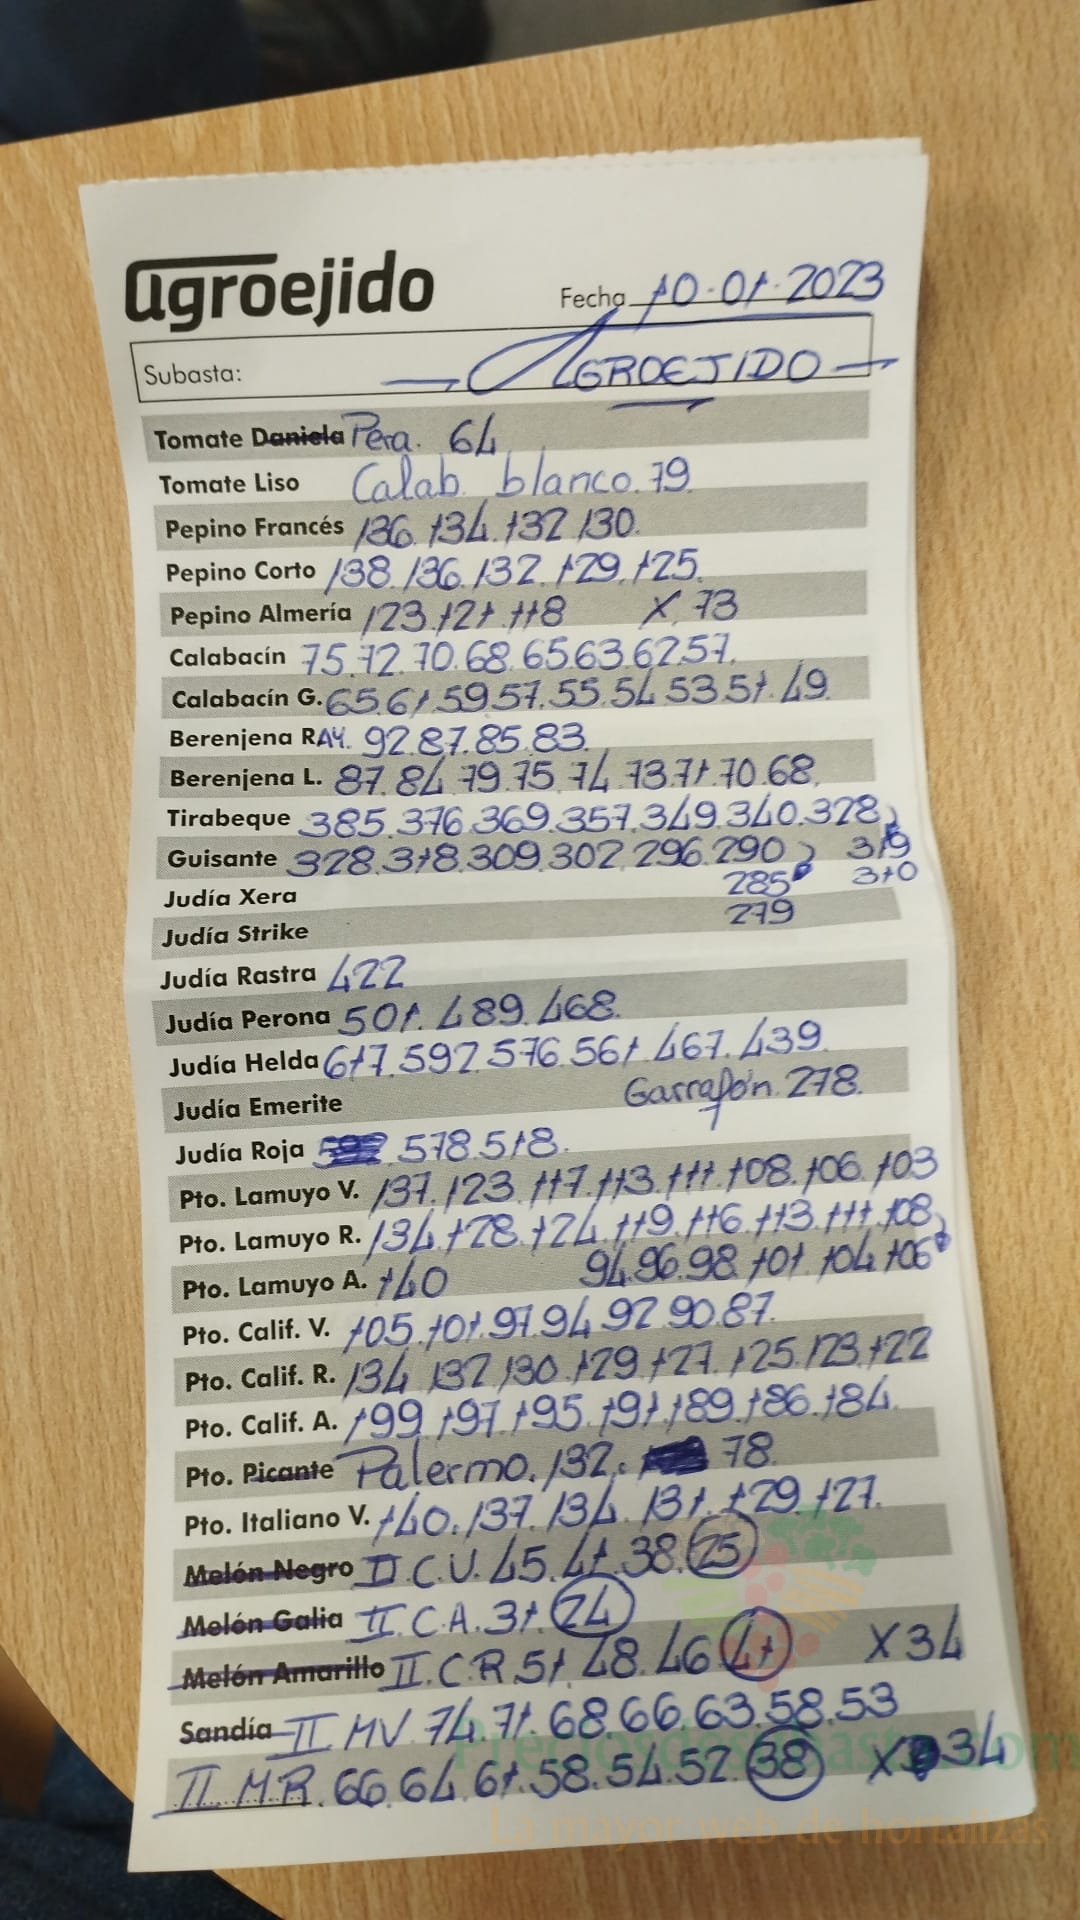 agroejido
Fecha 10-01-2023
Subasta: AGROEJIDO
Tomate Daniela Pera. 64
Tomate Liso Calab. blanco. 79
Pepino Francés 136. 134. 132 130.
Pepino Corto 138. 136. 132. 129. 125.
Pepino Almería 123. 121. 118 X. 73
Calabacín 75. 72. 70. 68. 65 63. 62. 57.
Calabacín G. 65. 61. 59. 57. 55. 54 53. 51. 49.
Berenjena RAY. 92. 87. 85. 83.
Berenjena L. 87. 84. 79. 75. 74. 73. 71. 70. 68.
Tirabeque 385. 376. 369. 357. 349. 340. 328
Guisante 328. 318. 309. 302. 296. 290 319
Judía Xera 285 310
Judía Strike 279
Judía Rastra 422
Judía Perona 501. 489. 468.
Judía Helda 617. 592. 576. 561. 467. 439.
Judía Emerite Garrafón. 278.
Judía Roja 578. 518.
Pto. Lamuyo V. 137. 123. 117. 113. 111. 108. 106. 103
Pto. Lamuyo R. 134. 128. 124. 119. 116. 113. 111. 108
Pto. Lamuyo A. 140 94. 96. 98. 101. 104. 106
Pto. Calif. V. 105. 101. 97. 94. 92. 90. 87.
Pto. Calif. R. 134 132 130. 129. 127. 125. 123. 122
Pto. Calif. A. 199. 197. 195. 191. 189. 186. 184.
Pto. Picante Palermo. 132. 78.
Pto. Italiano V. 140. 137. 134. 131. 129. 127.
Melón Negro II C.V. 45. 41. 38. 25
Melón Galia II. C.A. 31. 24
Melón Amarillo II. C.R. 51 48. 46 41 X 34
Sandía II. MV. 74. 71. 68. 66. 63. 58. 53
II. M.R. 66. 64. 61. 58. 54. 52. 38 X 34
La mayor web de hortalizas